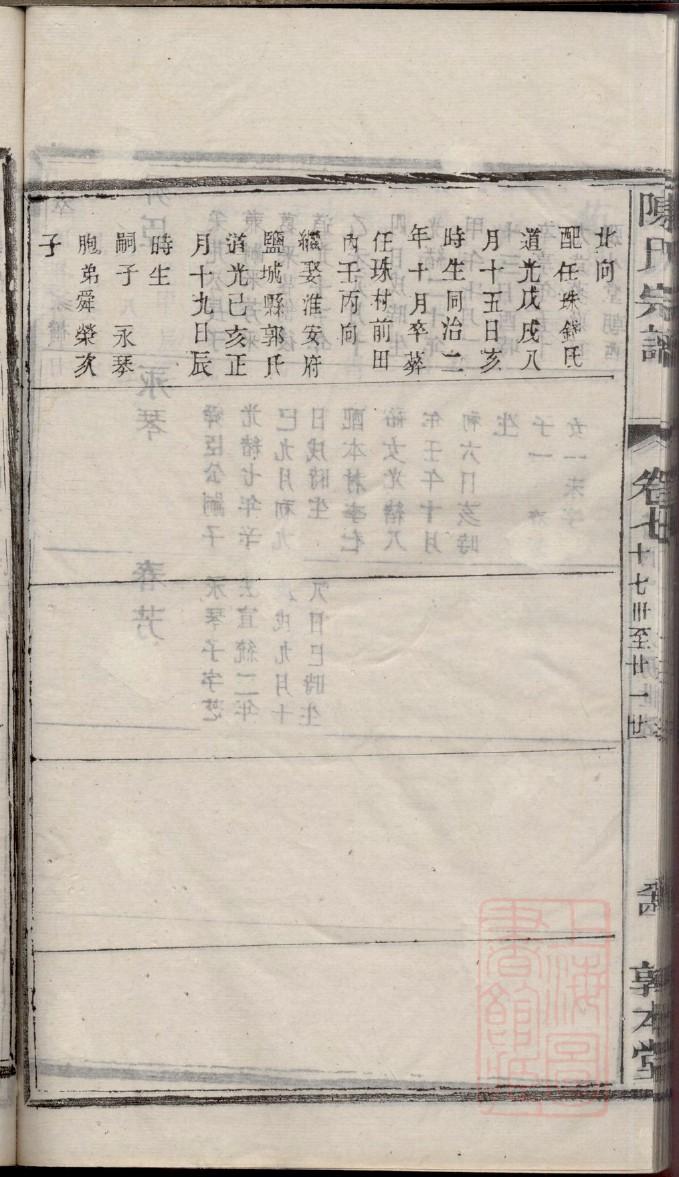 陳氏宗譜
卷七
十七卅至廿一世
敦本堂
北向
配任珠錢氏
道光戊戌八
月十五日亥
時生同治二
年十月卒葬
任珠村前田
內壬丙向
繼娶淮安府
鹽城縣郭氏
道光己亥正
月十九日辰
時生
嗣子 永琴
胞弟舜榮次
子
上海圖書館藏